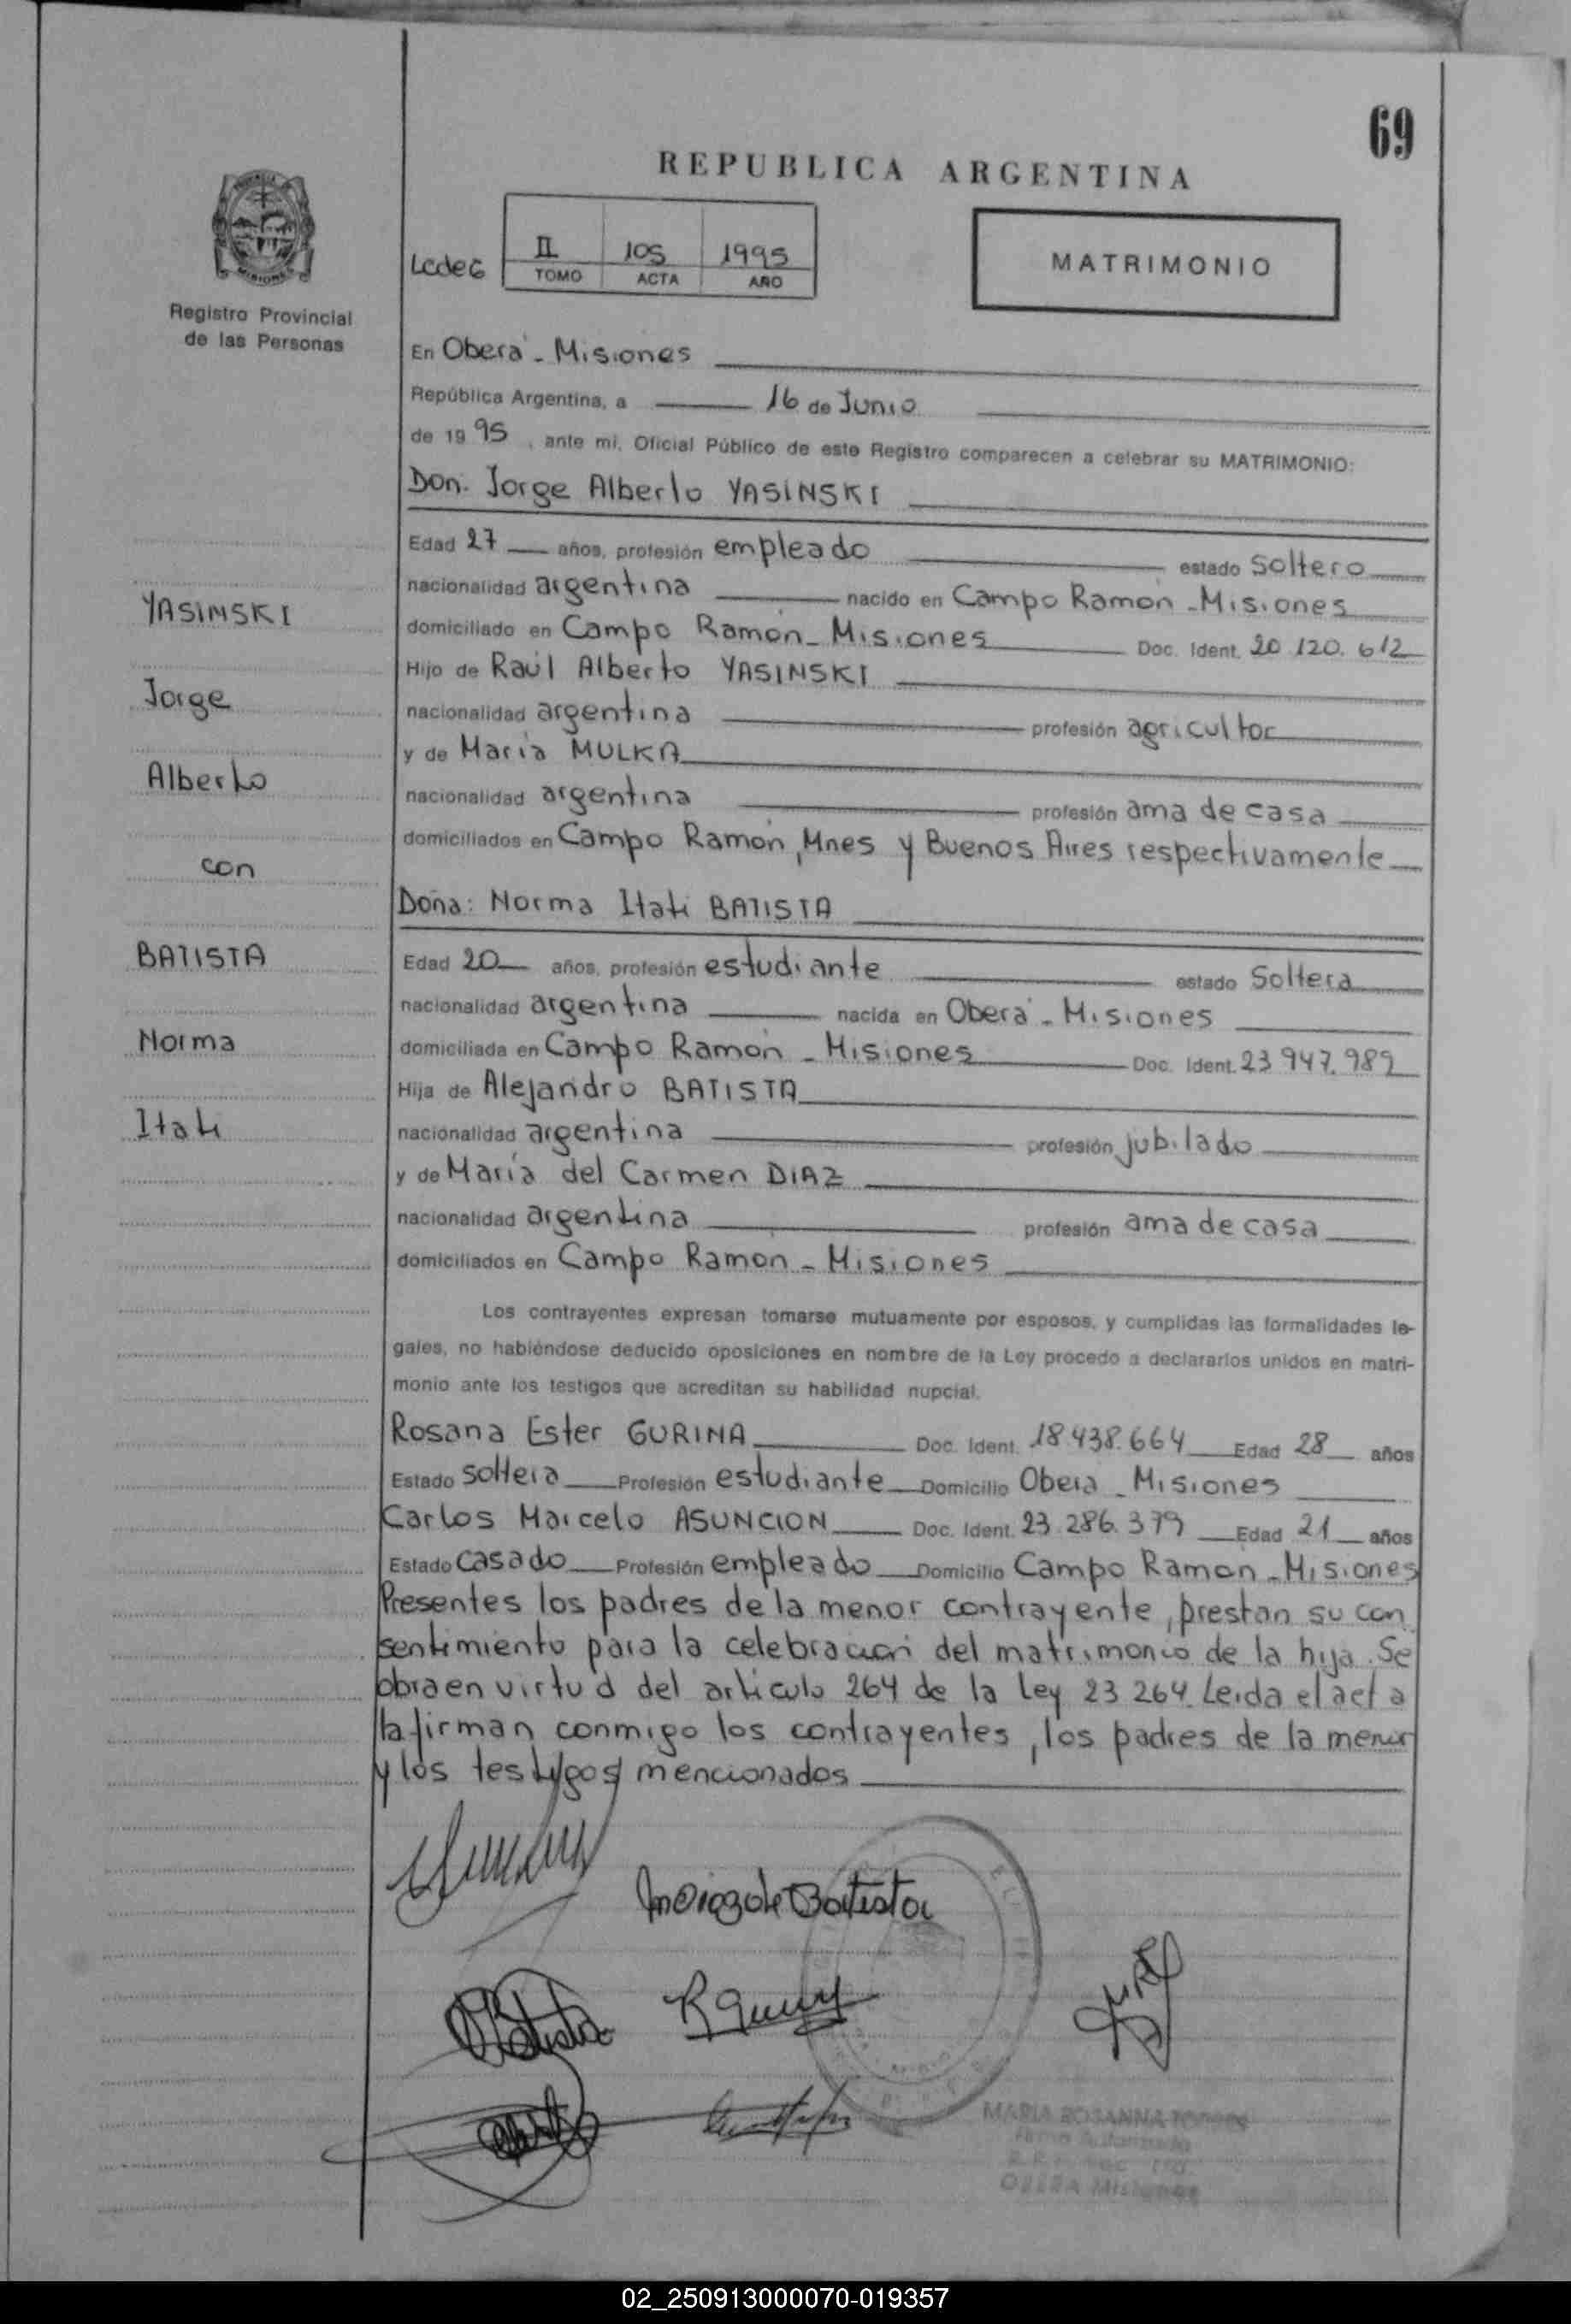 69
REPUBLICA ARGENTINA
II 105 1995
TOMO ACTA AÑO
MATRIMONIO
PROVINCIA
MISIONES
Registro Provincial
de las Personas
En Oberá - Misiones
República Argentina, a 16 de Junio
de 1995, ante mi, Oficial Público de este Registro comparecen a celebrar su MATRIMONIO:
Don. Jorge Alberto YASINSKI
Edad 27 años, profesión empleado estado soltero
nacionalidad argentina nacido en Campo Ramón - Misiones
domiciliado en Campo Ramón - Misiones Doc. Ident. 20.120.612
Hijo de Raúl Alberto YASINSKI
nacionalidad argentina profesión agricultor
y de María MULKA
nacionalidad argentina profesión ama de casa
domiciliados en Campo Ramón, Mnes y Buenos Aires respectivamente
Doña: Norma Itatí BATISTA
Edad 20 años, profesión estudiante estado Soltera
nacionalidad argentina nacida en Oberá - Misiones
domiciliada en Campo Ramón - Misiones Doc. Ident. 23.947.989
Hija de Alejandro BATISTA
nacionalidad argentina profesión jubilado
y de María del Carmen DIAZ
nacionalidad argentina profesión ama de casa
domiciliados en Campo Ramón - Misiones
YASINSKI
Jorge
Alberto
con
BATISTA
Norma
Itatí
Los contrayentes expresan tomarse mutuamente por esposos, y cumplidas las formalidades le-
gales, no habiéndose deducido oposiciones en nombre de la Ley procedo a declararlos unidos en matri-
monio ante los testigos que acreditan su habilidad nupcial.
Rosana Ester GURINA Doc. Ident. 18.438.664 Edad 28 años
Estado soltera Profesión estudiante Domicilio Oberá - Misiones
Carlos Marcelo ASUNCION Doc. Ident. 23.286.379 Edad 21 años
Estado casado Profesión empleado Domicilio Campo Ramon - Misiones
Presentes los padres de la menor contrayente, prestan su con
sentimiento para la celebración del matrimonio de la hija. Se
obra en virtud del artículo 264 de la Ley 23.264. Leida el acta
la firman conmigo los contrayentes, los padres de la menor
y los testigos mencionados
Batista
MARIA ROSANNA TORRES
Firma Autorizada
OBERA Misiones
02_250913000070-019357